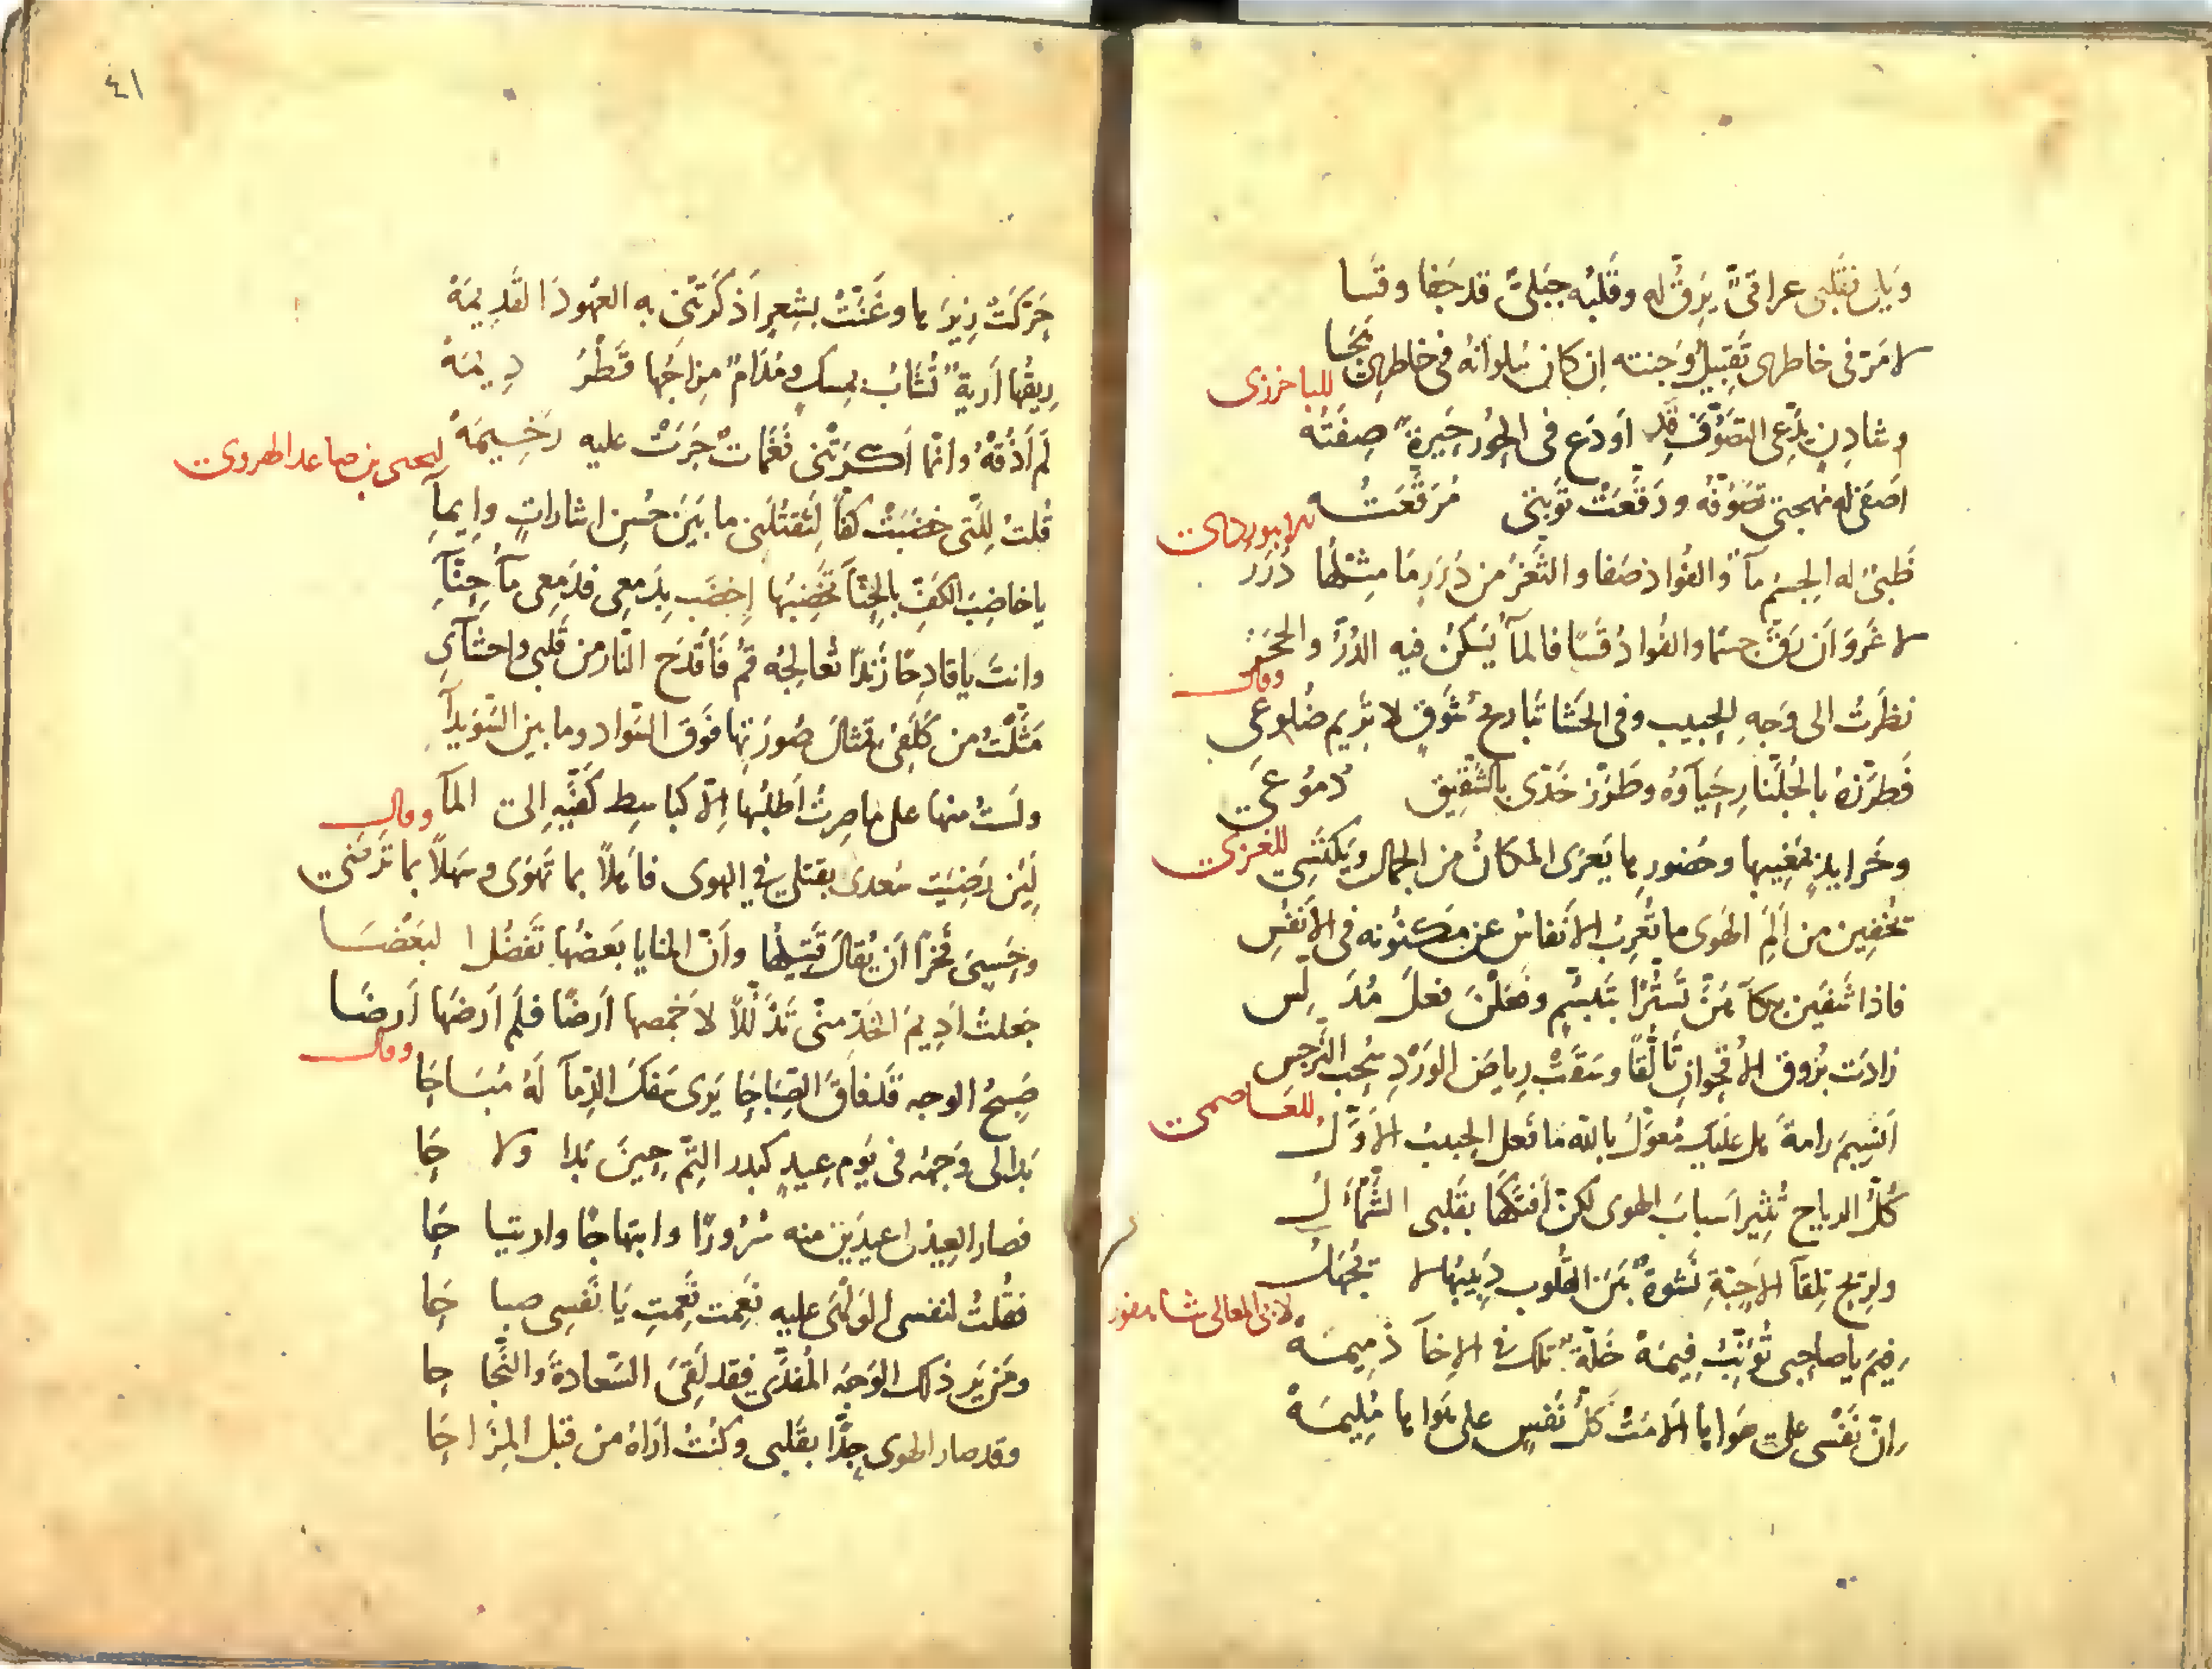 وَيلي بقلبي عراقيٌّ يَرِقُّ له وقلبُه جبَليٌّ قد جَفا وقَسا
لا مَرَّ في خاطري تَقبيلُ وَجنته إن كان سُلوانُه في خاطري هَجَسا
للباخرزي
وشادِنٍ يدّعي التصوُّفَ قد اودَع في الحُور حَيرةً صِفَتُه
اصفى له مُهجتي تصَوُّفُه ورَقّعَتْ تَوبَتي مُرَقَّعَتُه
للابيوردي
ظَبيٌ له الجسمُ مآءٌ والفُؤاد صَفا والثَّغرُ من دُرَرٍ مَا مِثلُها دُرَرُ
لا غَروَ اَن رَقَّ جسمًا والفُؤادُ قَسَا فالمآءُ يَسكُنُ فيه الدُرُّ والحَجَرُ
وقال
نظَرتُ الى وَجهِ الحبيب وفي الحَشا تَبارِيحُ شَوقٍ لا تَرِيم ضُلوعي
فَطرَّزهُ بالجُلَّنارِ حَيَآؤُهُ وطَرَّز خَدّي بالشَّقِيق دُموعي
للغزي
وخَرايدٍ بمَغِيبها وحُضورِها يَعرَى المكانُ من الجمال ويَكتَسِي
تُخفِين من اَلَمِ الهَوى ما تُعرِبُ الاَنفاسُ عن مَكنُونه في الاَنفُسِ
فاذا شَفَين بكآءَهُنَّ تَسَتُّرًا بتَبسُّمٍ وفعَلْنَ فعلَ مُدَلِّس
زادَت بُرُوق الاُقحُوانِ تأَلُّقًا وسَقَتْ رِياضَ الوَردِ سُحبُ النَرجِس
للعَاصمي
اَنَسِيمَ رامةَ هل عليك مُعوَّلُ بالله مَا فَعل الحبيبُ الاَوَّلُ
كُلُّ الرياح تُثِير اَسبابَ الهوى لكنّ اَفتَكَها بقَلبي الشَّمأَلُ
ولرِيح تِلقآءِ الاَحِبّةِ نَشوةٌ بَين القُلوب دَبِيبُها لا يُجهَلُ
لابي المعالي شابور
فِيمَ يا صاحبي تُؤَنِّبُ فِيمَهْ خَلّةٌ تلك في الاِخآء ذَمِيمَهْ
اِنّ نَفْسي على هَواها اَلامَتْ كُلُّ نَفسٍ على هَواها مُلِيمَهْ
٤١
حَرّكَتْ زِيرَها وغَنَّتْ بشِعرٍ اَذكَرَتْنِي به العُهودَ القَدِيمَهْ
رِيقُها اَريَةٌ تُشَابُ بمِسكٍ ومُدَامٌ مِزاجُها قَطْرُ دِيمَهْ
لَم اَذُقْهُ وانّما اَسكَرَتْني نَغَمَاتٌ جَرَتْ عليه رَخِيمَهْ
ليحيى بن صاعد الهروي
قُلتُ لِلَّتي خضَبَتْ كفًّا لِتَقتُلَني ما بَينَ حُسنِ اشاراتٍ وايمآءِ
يا خاضِبَ الكَفِّ بالحِنّآءِ تَخضِبُها اِخضَب بدَمعِي فدَمعِي مآءُ حِنّآءِ
وانتَ يا قادِحًا زَندًا تُعالجُه قُم فَاقدَح النّار من قَلبي واحشآئي
مَثَّلتُ من كَلَفي تمثالَ صُورَتها فَوقَ السَّواد وما بين السُّوَيدآءِ
ولَستُ منها على ما صِرتُ اَطلبُها اِلّا كباسِط كَفَّيهِ اِلى المآءِ
وقال
لَئِن رَضِيَت سُعدى بقتلي في الهوى فاَهلاً بما تَهوَى وسَهلاً بما تَرضَى
وحَسبيَ فَخرًا اَن يُقالَ قَتِيلُها واَنّ المنايا بَعضُها تَفضُل البَعْضَا
جعلتُ اَدِيمَ الخَدّ منّي تَذَلُّلًا لاَخمصها اَرضًا فلَم اَرضَها اَرضَا
وقال
صَبِيحُ الوجه قَد فاقَ الصِّبَاحَا يَرى سَفكَ الدِّمآءِ لَهُ مُبَاحَا
بَدا لي وَجهُه في يَوم عِيدٍ كبدر التِّم حِينَ بَدا ولاحَا
فصار العِيدُ اعيدَين منه سُرُورًا وابتهاجًا وارتياحَا
فقُلتُ لنفسي الوَلْهَى عليه نَعِمتِ نَعِمتِ يَا نَفسِي صباحَا
ومَن يَر ذلك الوَجهَ المُفدَّى فقد لَقِيَ السَّعادةَ والنَّجاحا
وقد صار الهوى جِدًّا بقَلبي وكُنتُ اَراهُ من قبل المِزَاحَا